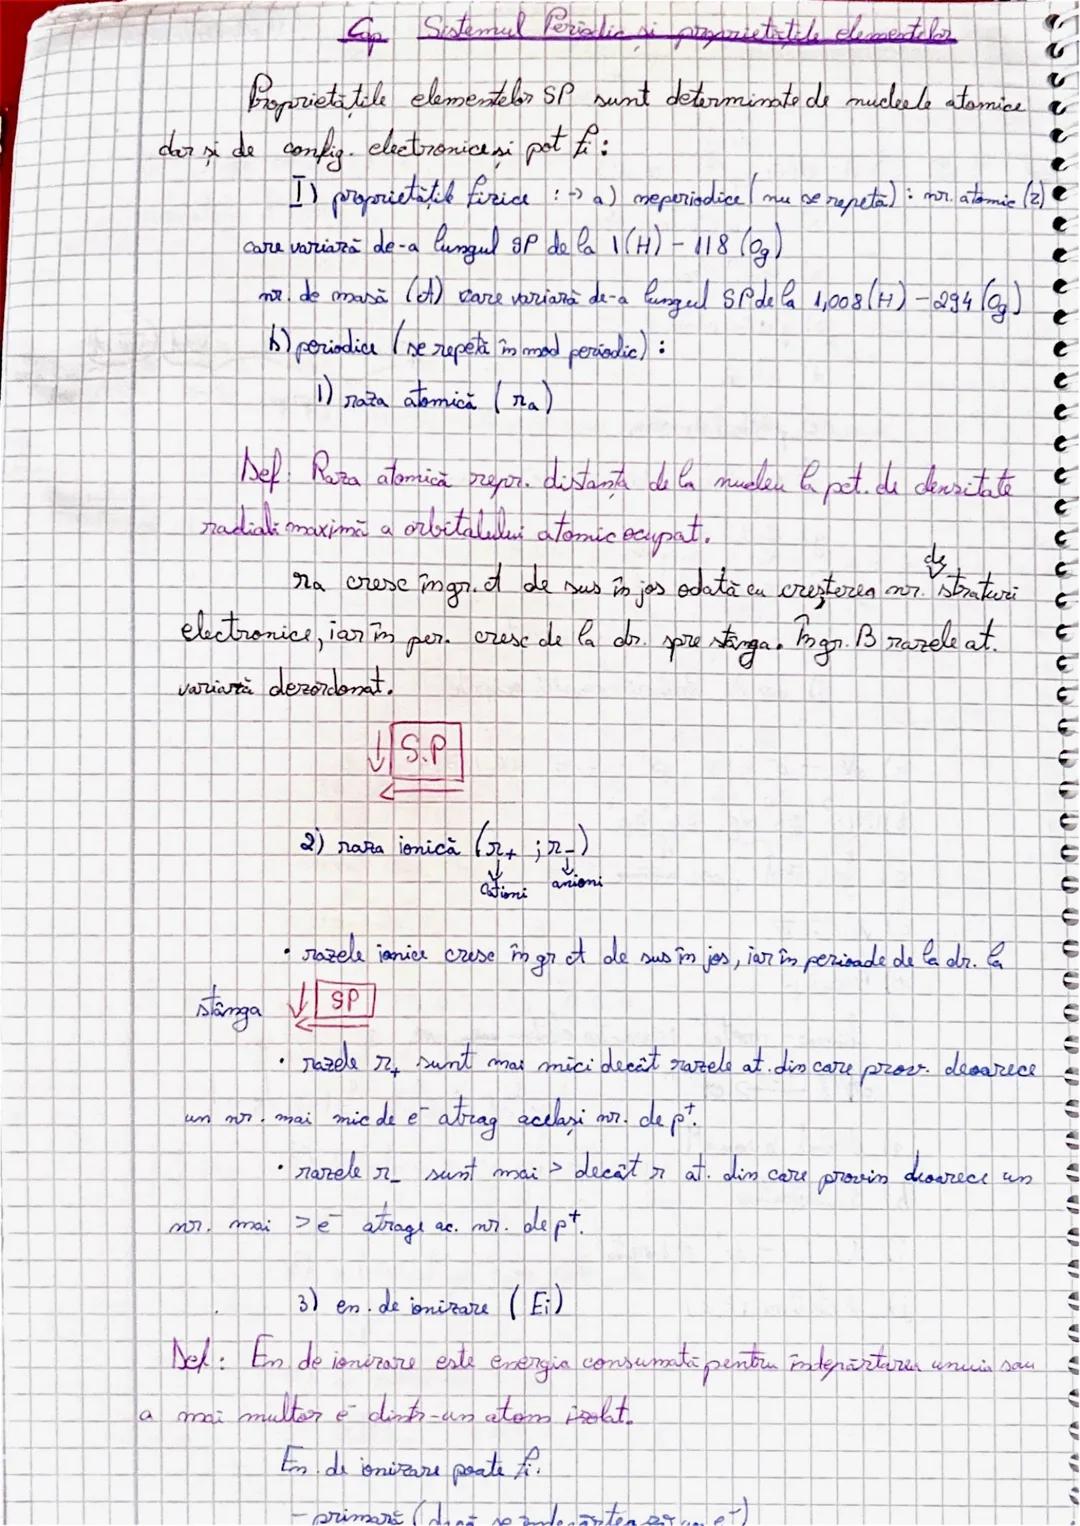 Cap Sistemul Periodic și proprietățile elementelor
Proprietățile elementelor SP sunt determinate de nucleele atomice
dar și de config. electronice și pot fi:
I) proprietățile fizice : → a) neperiodice (nu se repetă) : nr. atomic (z)
care variază de-a lungul SP de la 1(H) - 118 (Og)
nr. de masă (A) care variază de-a lungul SP de la 1,008(H) - 294 (Og)
b) periodice (se repetă în mod periodic) :
1) raza atomică (ra)
Def: Raza atomică repr. distanța de la nucleu la pct. de densitate
radială maximă a orbitalului atomic ocupat.
de
ra cresc în gr. A de sus în jos odată cu creșterea nr. straturi
electronice, iar în per. cresc de la dr. spre stânga. În gr. B razele at.
variază dezordonat.
↓ S.P
←
2) raza ionică (r+ ; r-)
↓ ↓
cationi anioni
• razele ionice cresc în gr A de sus în jos, iar în perioade de la dr. la
stânga ↓ SP
←
• razele r+ sunt mai mici decât razele at. din care prov. deoarece
un nr. mai mic de e⁻ atrag același nr. de p⁺.
• razele r- sunt mai > decât r at. din care provin deoarece un
nr. mai > e⁻ atrage ac. nr. de p⁺.
3) en. de ionizare (Ei)
Def: En de ionizare este energia consumată pentru îndepărtarea unuia sau
a mai multor e⁻ dintr-un atom izolat.
En. de ionizare poate fi:
- primară (dacă se îndepărtează un e⁻)